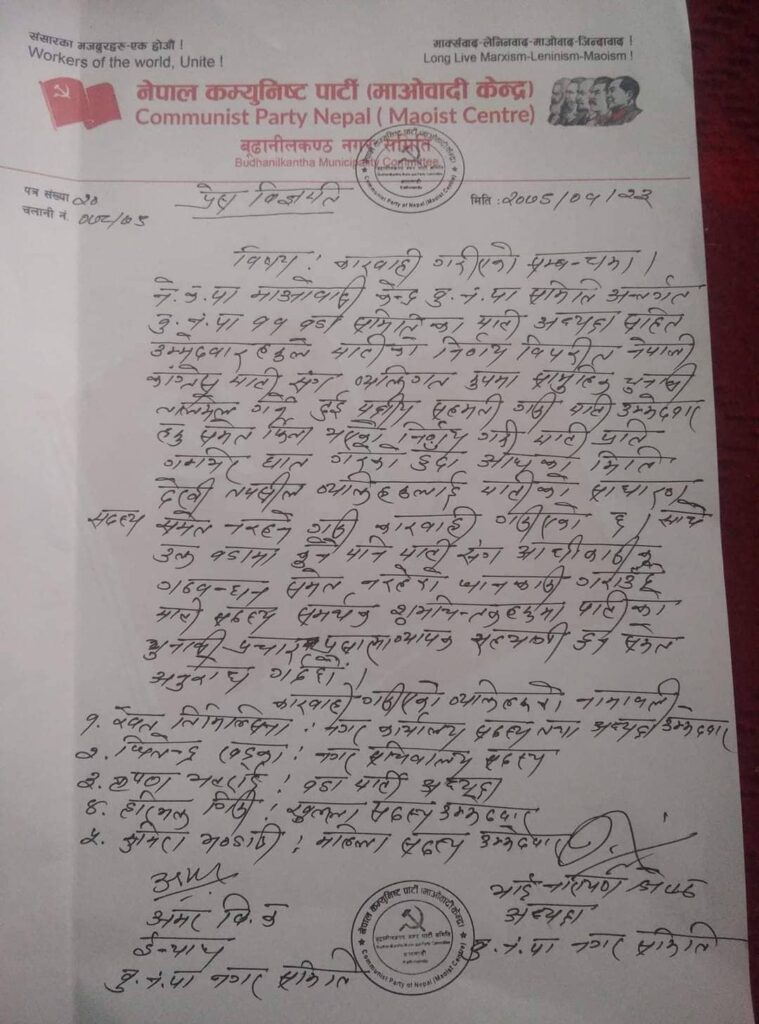 संसारका मजदुरहरु-एक होऔं !
Workers of the world, Unite !
मार्क्सवाद-लेनिनवाद-माओवाद-जिन्दावाद !
Long Live Marxism-Leninism-Maoism !
नेपाल कम्युनिष्ट पार्टी (माओवादी केन्द्र)
Communist Party Nepal ( Maoist Centre)
बूढानीलकण्ठ नगर समिति
Budhanilkantha Municipality Committee
पत्र संख्या २०
चलानी नं. ०७८/७९
प्रेस विज्ञप्ति
मिति :
विषय : कारवाही गरीएको सम्बन्धमा।
ने.क.पा माओवादी केन्द्र बु.नं.पा समिति अन्तर्गत
बु.नं.पा ११ वडा समितिका पार्टी अध्यक्ष सहित
उम्मेदवारहरुले पार्टीको निर्णय विपरीत नेपाली
कांग्रेस पार्टी संग व्यक्तिगत रुपमा सामुहिक चुनावी
तालमेल गर्ने दुई पक्षीय सहमती गरी पार्टी उम्मेदवार
हरु समेत फिर्ता भएको निर्णय गरी पार्टी प्रति
गम्भीर घात गरेको हुँदा आजका मिति
देखी तपसील व्यक्तिहरुलाई पार्टीको साधारण
सदस्य समेत नरहने गरी कारवाही गरीएको छ। साथै
उक्त वडामा कुनै पनि पार्टी संग आधीकारीक
गठबन्धन समेत नरहेको जानकारी गराउँदै
पार्टी सदस्य समर्थक शुभचिन्तकहरुमा पार्टीका
चुनावी प्रचार व्यापक सहभागी हुन समेत
अनुरोध गर्दछौं।
कारवाही गरीएको व्यक्तिहरुको नामावली
१. रेवत तिमिल्सिना : नगर कार्यालय सदस्य तथा अध्यक्ष उम्मेदवार
२. खड्का : नगर सचिवालय सदस्य
३. कृष्ण भट्टराई : वडा पार्टी अध्यक्ष
४. गिरी : खुल्ला सदस्य उम्मेदवार
५. सुमित्रा भण्डारी : महिला सदस्य उम्मेदवार
अमर वि.क
ईन्चार्ज
बु.नं.पा नगर समिति
नारायण श्रेष्ठ
अध्यक्ष
बु.नं.पा नगर समिति
नेपाल कम्युनिष्ट पार्टी (माओवादी केन्द्र)
Communist Party of Nepal (Maoist Centre)